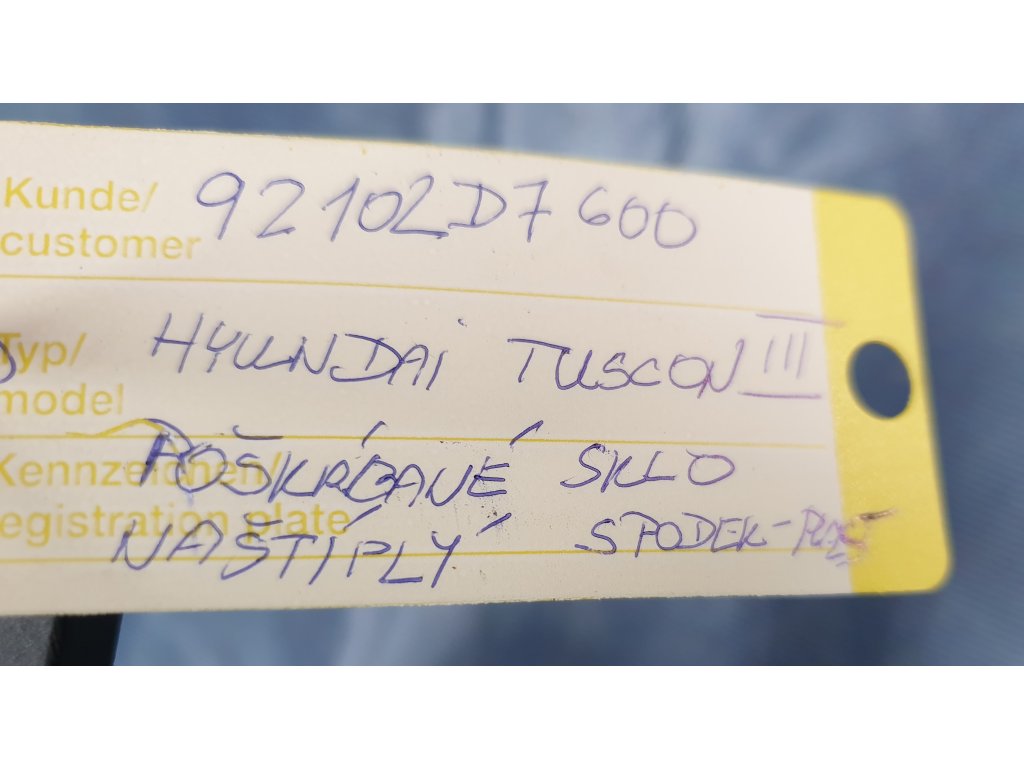 Kunde/ 92102D7600
customer
Typ/ HYUNDAI TUSCON III
model
Kennzeichen/ POŠKRÍBANÉ SKLO
egistration plate
NAŠTÍPLÝ SPODEK-PLAST